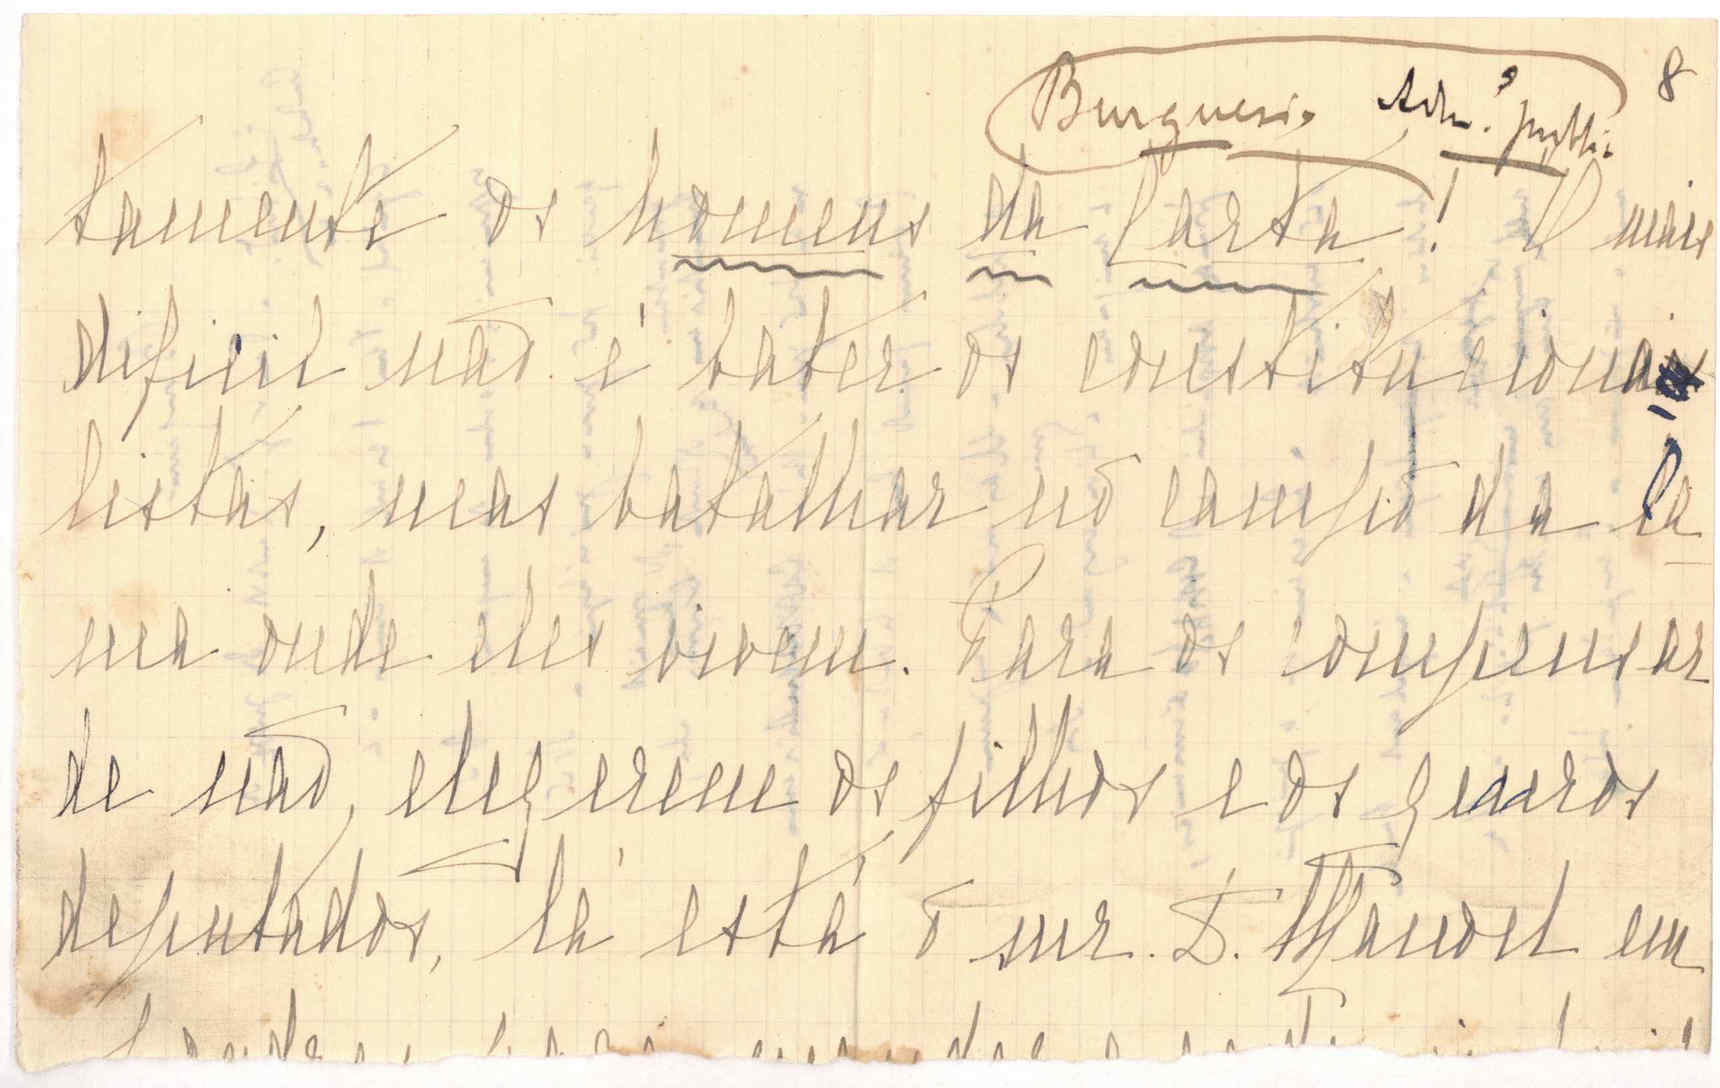 8
Burguesia Adm.º públi
tamente os homens da Carta! O mais
dificil não é bater os constituciona
listas, mas batalhar no campo da la
ma onde eles vivem. Para os compensar
de não elegerem os filhos e os genros
deputados, lá está o snr. D. Manoel em